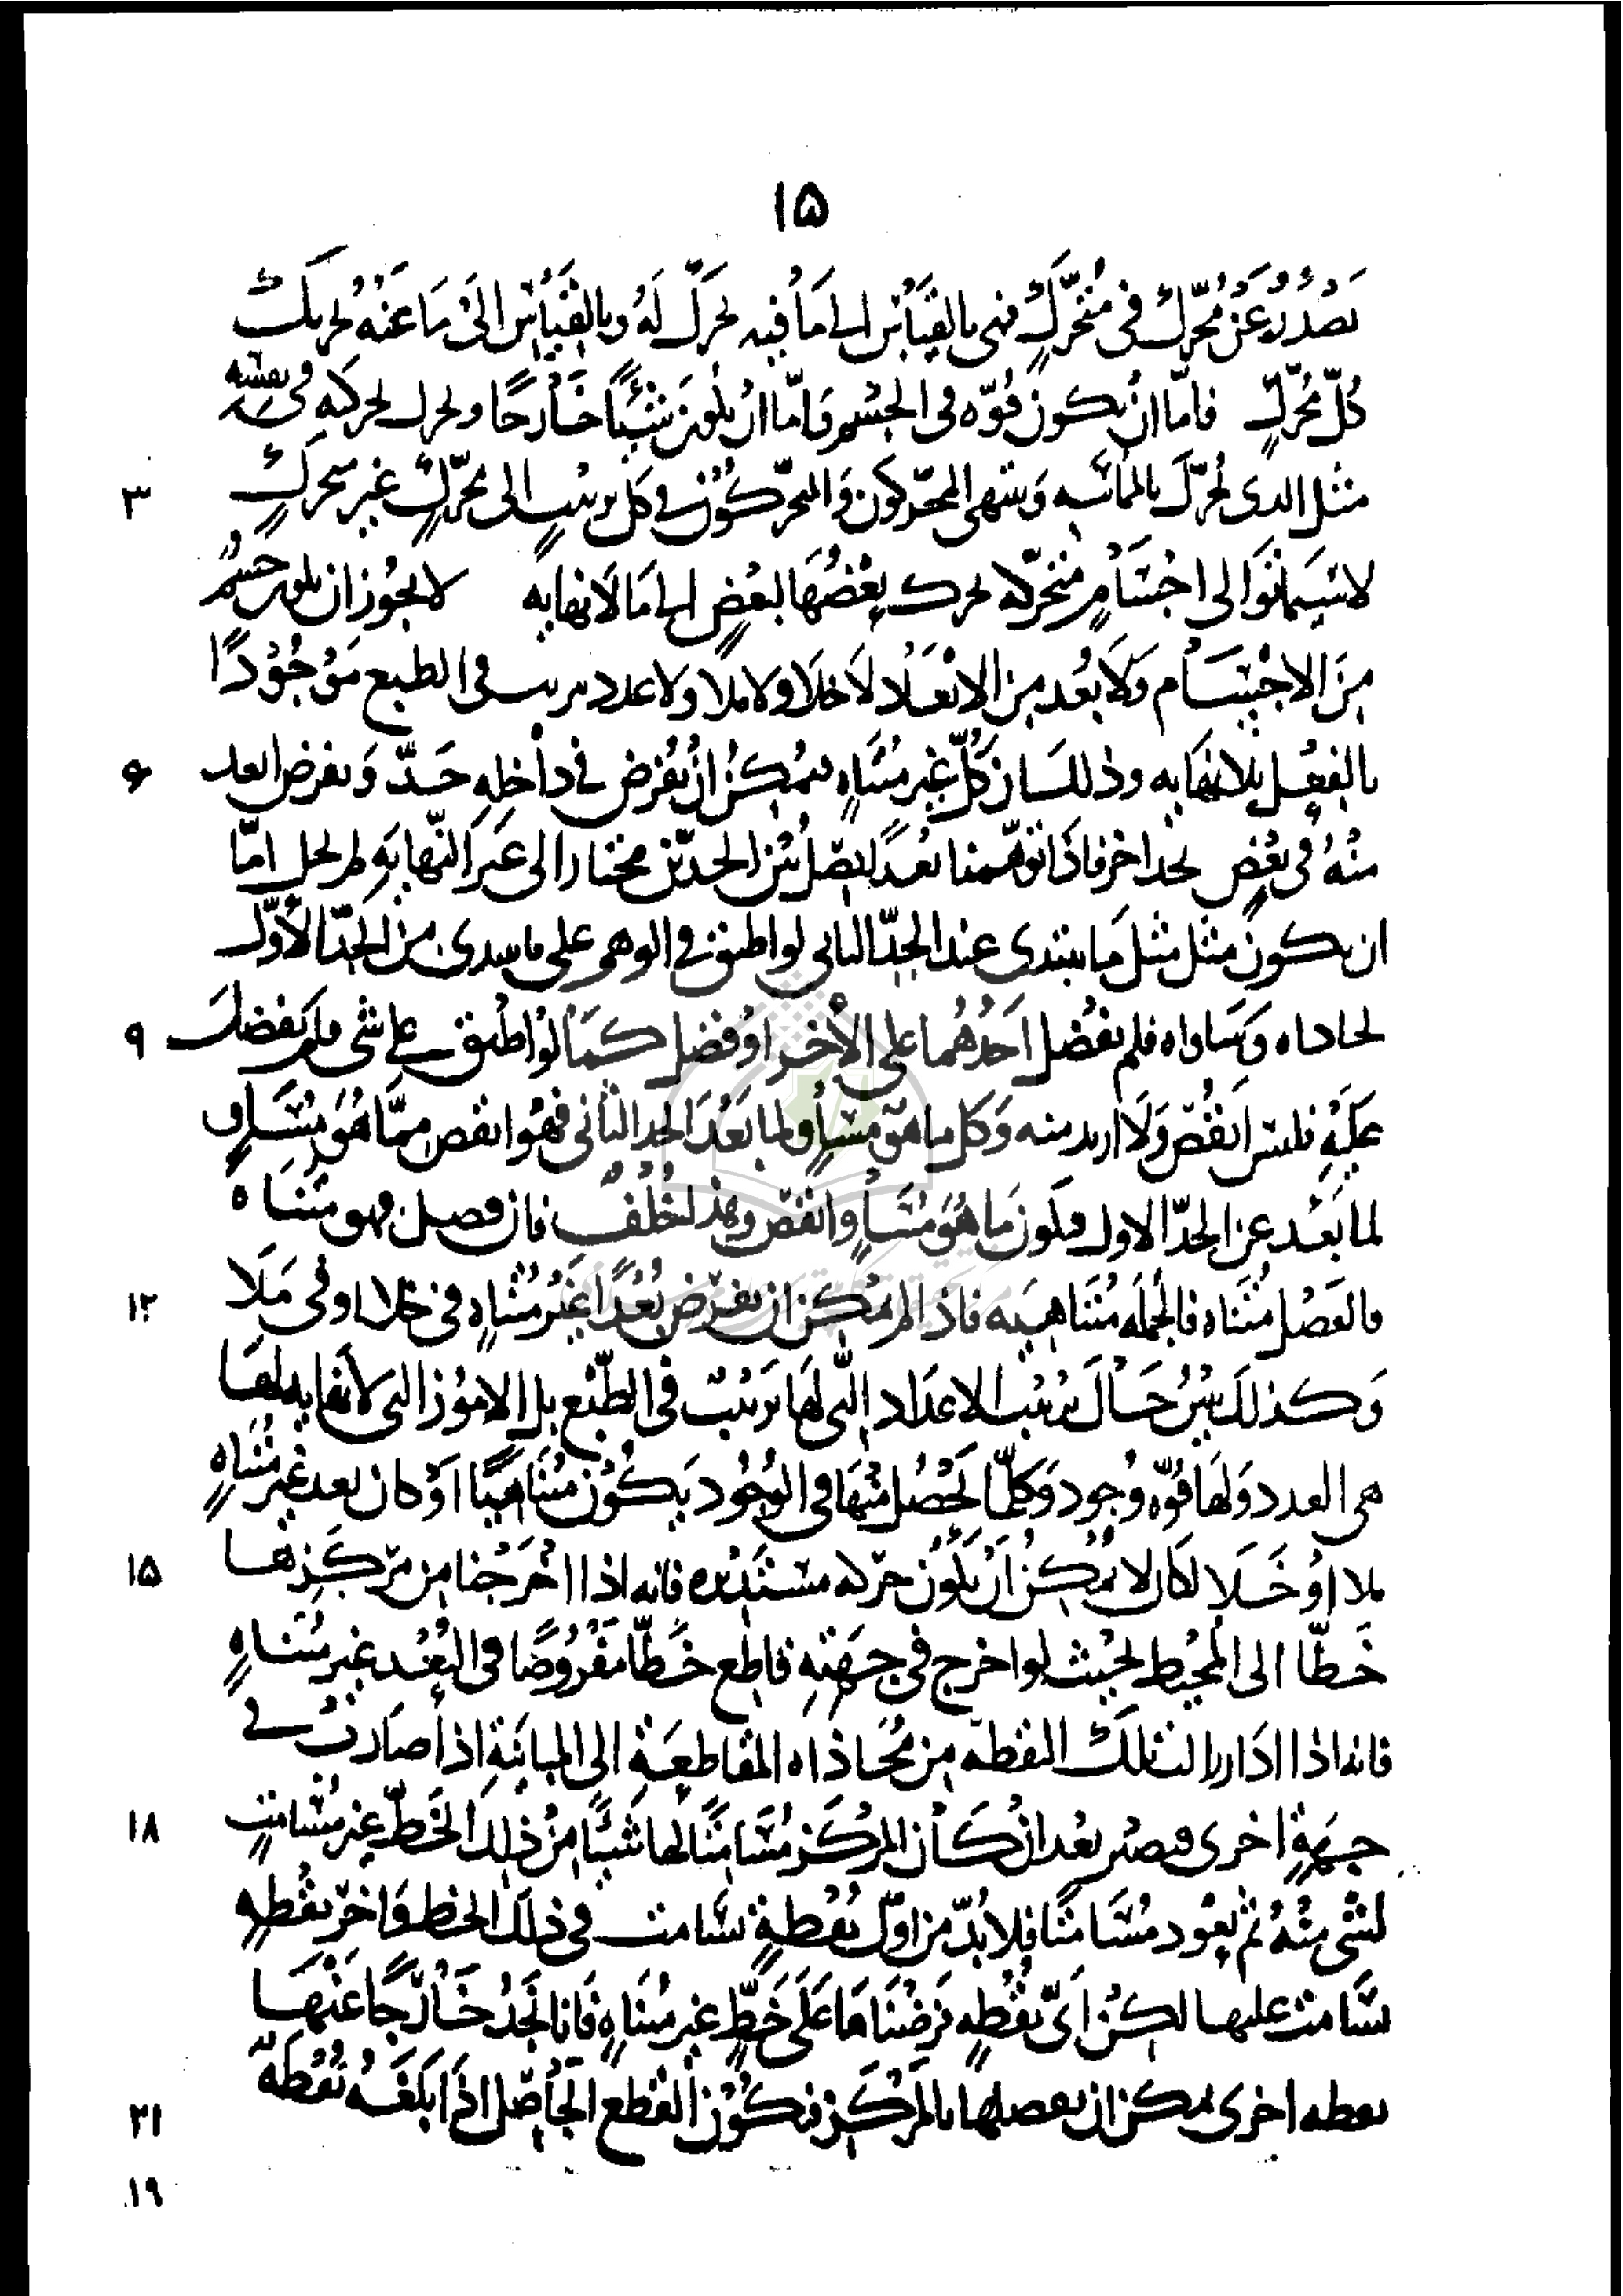 ۱۵
تصدر عن محرّك فى متحرّك فهى بالقياس الى ما فيه تحرّك له وبالقياس الى ما عنه تحريك
كلّ محرّكٍ فامّا ان يكون قوّه فى الجسم وامّا ان يكون شيئًا خارجًا ويحرك بحركته فى نفسه
۳ مثل الذى يحرّك بالمماسّه وينتهى المحرّكون والمتحرّكون فى كل ترتيب الى محرّكٍ غير متحركٍ
لاستحاله توالى اجسامٍ متحرّكه يحرك بعضها لبعضٍ الى ما لا نهايه لا يجوز ان يكون جسم
من الاجسام ولا بُعد من الابعاد لا خلا ولا ملا ولا عدد مرتب فى الطبع موجودًا
۶ بالفعل بلا نهايه وذلك لان كلّ غير متناهٍ يمكن ان يفرض فى داخله حدّ ويفرض ابعد
منه فى بعض حد اخر فاذا توهّمنا بعدًا يتصل بين الحدّين مختارا الى غير النّهايه لم يخل امّا
ان يكون مثل ما يبتدى عند الحدّ الثانى لو اطبق فى الوهم على ما يبتدى من الحدّ الاوّل
۹ لحاذاه وساواه فلم يفضل احدهما على الآخر او فضل كما لو اطبق على شى ولم يفضل
عليه فليس انقص ولا ازيد منه وكل ما هو مساوٍ لما بعد الحد الثانى فهو انقص ممّا هو مساوٍ
لما بعد عن الحدّ الاول فيكون ما هو مساوٍ انقص وهذا خلف فان فصل فهو متناه
۱۲ والفصل متناه فالجمله متناهيه فاذا لم يمكن ان يفرض بُعدًا غير متناهٍ فى خلا او فى ملا
وكذلك يبين حال ترتيب الاعداد التى لها ترتيب فى الطّبع بل الامور التى لا نهايه لها
هى العدد ولها قوّه وجود وكلّ ما يحصل منها فى الوجود يكون متناهيًا اذ لو كان بعد غير متناهٍ
۱۵ ملا او خلا لكان لا يمكن ان يكون حركه مستديره فانه اذا اخرجنا من مركزها
خطّا الى المحيط بحيث لو اخرج فى جهته قاطع خطّا مفروضًا فى البعد غير متناهٍ
فانه اذا ادار زالت تلك النقطه من محاذاه المقاطعة الى المباينة اذا صارت فى
۱۸ جهةٍ اخرى فيصير بعد ان كان المركز مسامتًا لها شيئًا من ذلك الخطّ غير مسامتٍ
لشى منه ثم يعود مسامتًا فلا بدّ من اوّل نقطةٍ تسامت فى ذلك الخط واخر نقطهٍ
تسامت عليها لكن اىّ نقطهٍ فرضناها على خطٍّ غير متناهٍ فانا نجد خارجًا عنها
۲۱ نقطه اخرى يمكن ان نصلها بالمركز فيكون القطع الحاصل اذا بلغه نقطه
۱۹